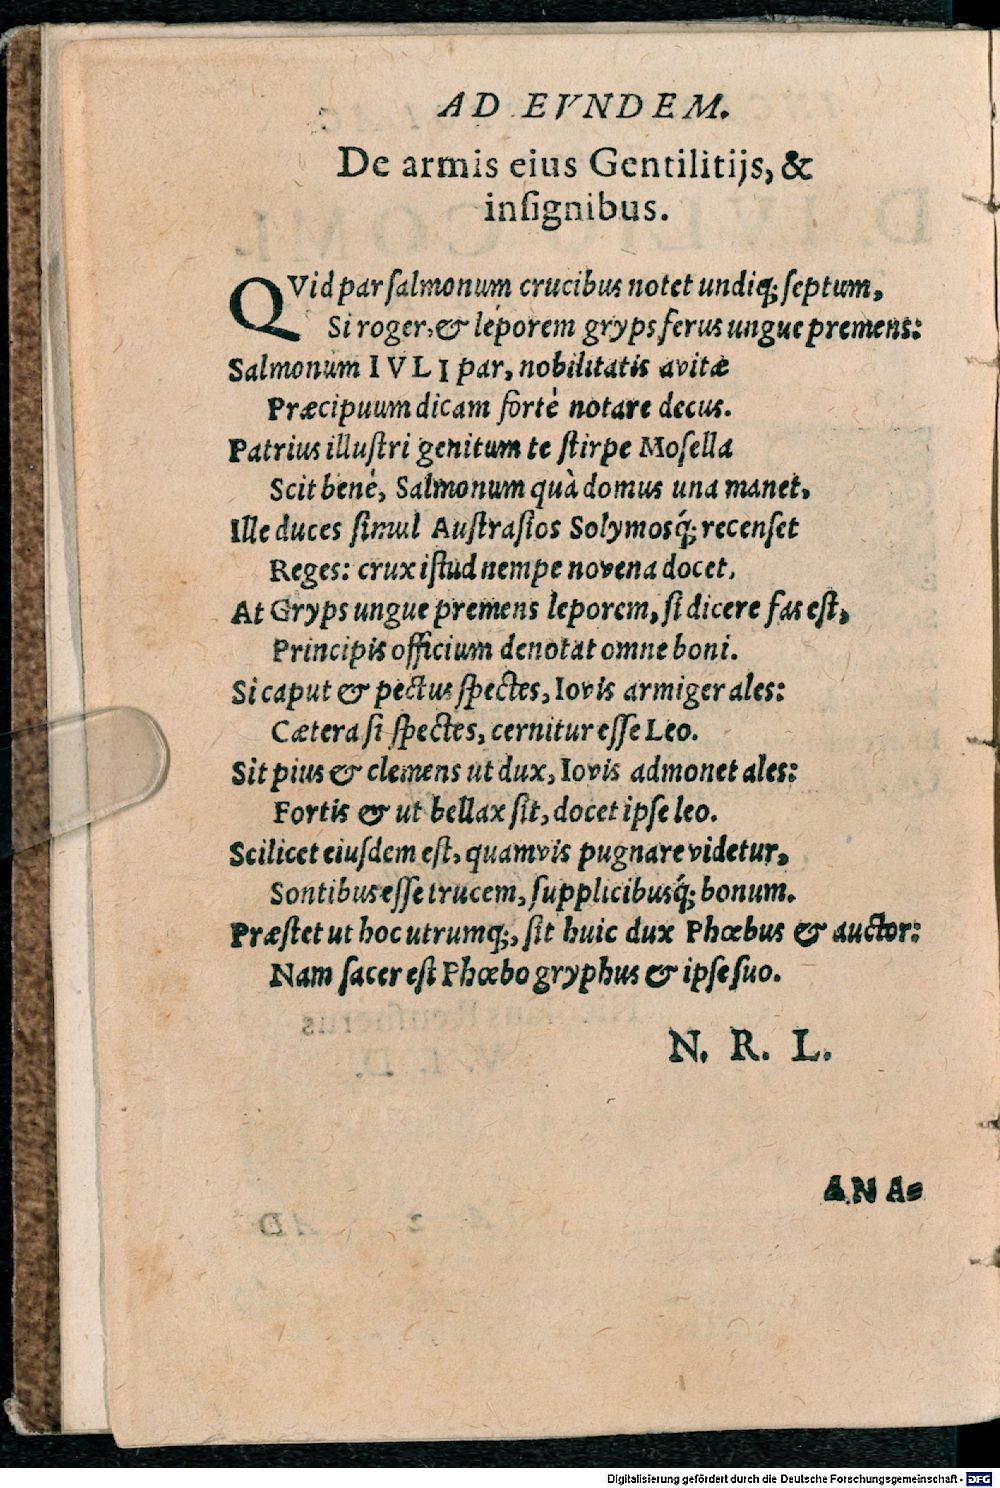 AD EVNDEM.
De armis eius Gentilitijs, &
insignibus.
QVid par salmonum crucibus notet undiq; septum,
Si roger, & leporem gryps ferus ungue premens:
Salmonum IVLI par, nobilitatis avitæ
Præcipuum dicam fortè notare decus.
Patrius illustri genitum te stirpe Mosella
Scit benè, Salmonum quà domus una manet.
Ille duces simul Austrasios Solymosq́; recenset
Reges: crux istud nempe novena docet.
At Gryps ungue premens leporem, si dicere fas est,
Principis officium denotat omne boni.
Si caput & pectus spectes, Iovis armiger ales:
Cætera si spectes, cernitur esse Leo.
Sit pius & clemens ut dux, Iovis admonet ales:
Fortis & ut bellax sit, docet ipse leo.
Scilicet eiusdem est, quamvis pugnare videtur,
Sontibus esse trucem, supplicibusq́; bonum.
Præstet ut hoc utrumq;, sit huic dux Phœbus & auctor:
Nam sacer est Phœbo gryphus & ipse suo.
N. R. L.
ANA=
Digitalisierung gefördert durch die Deutsche Forschungsgemeinschaft - DFG